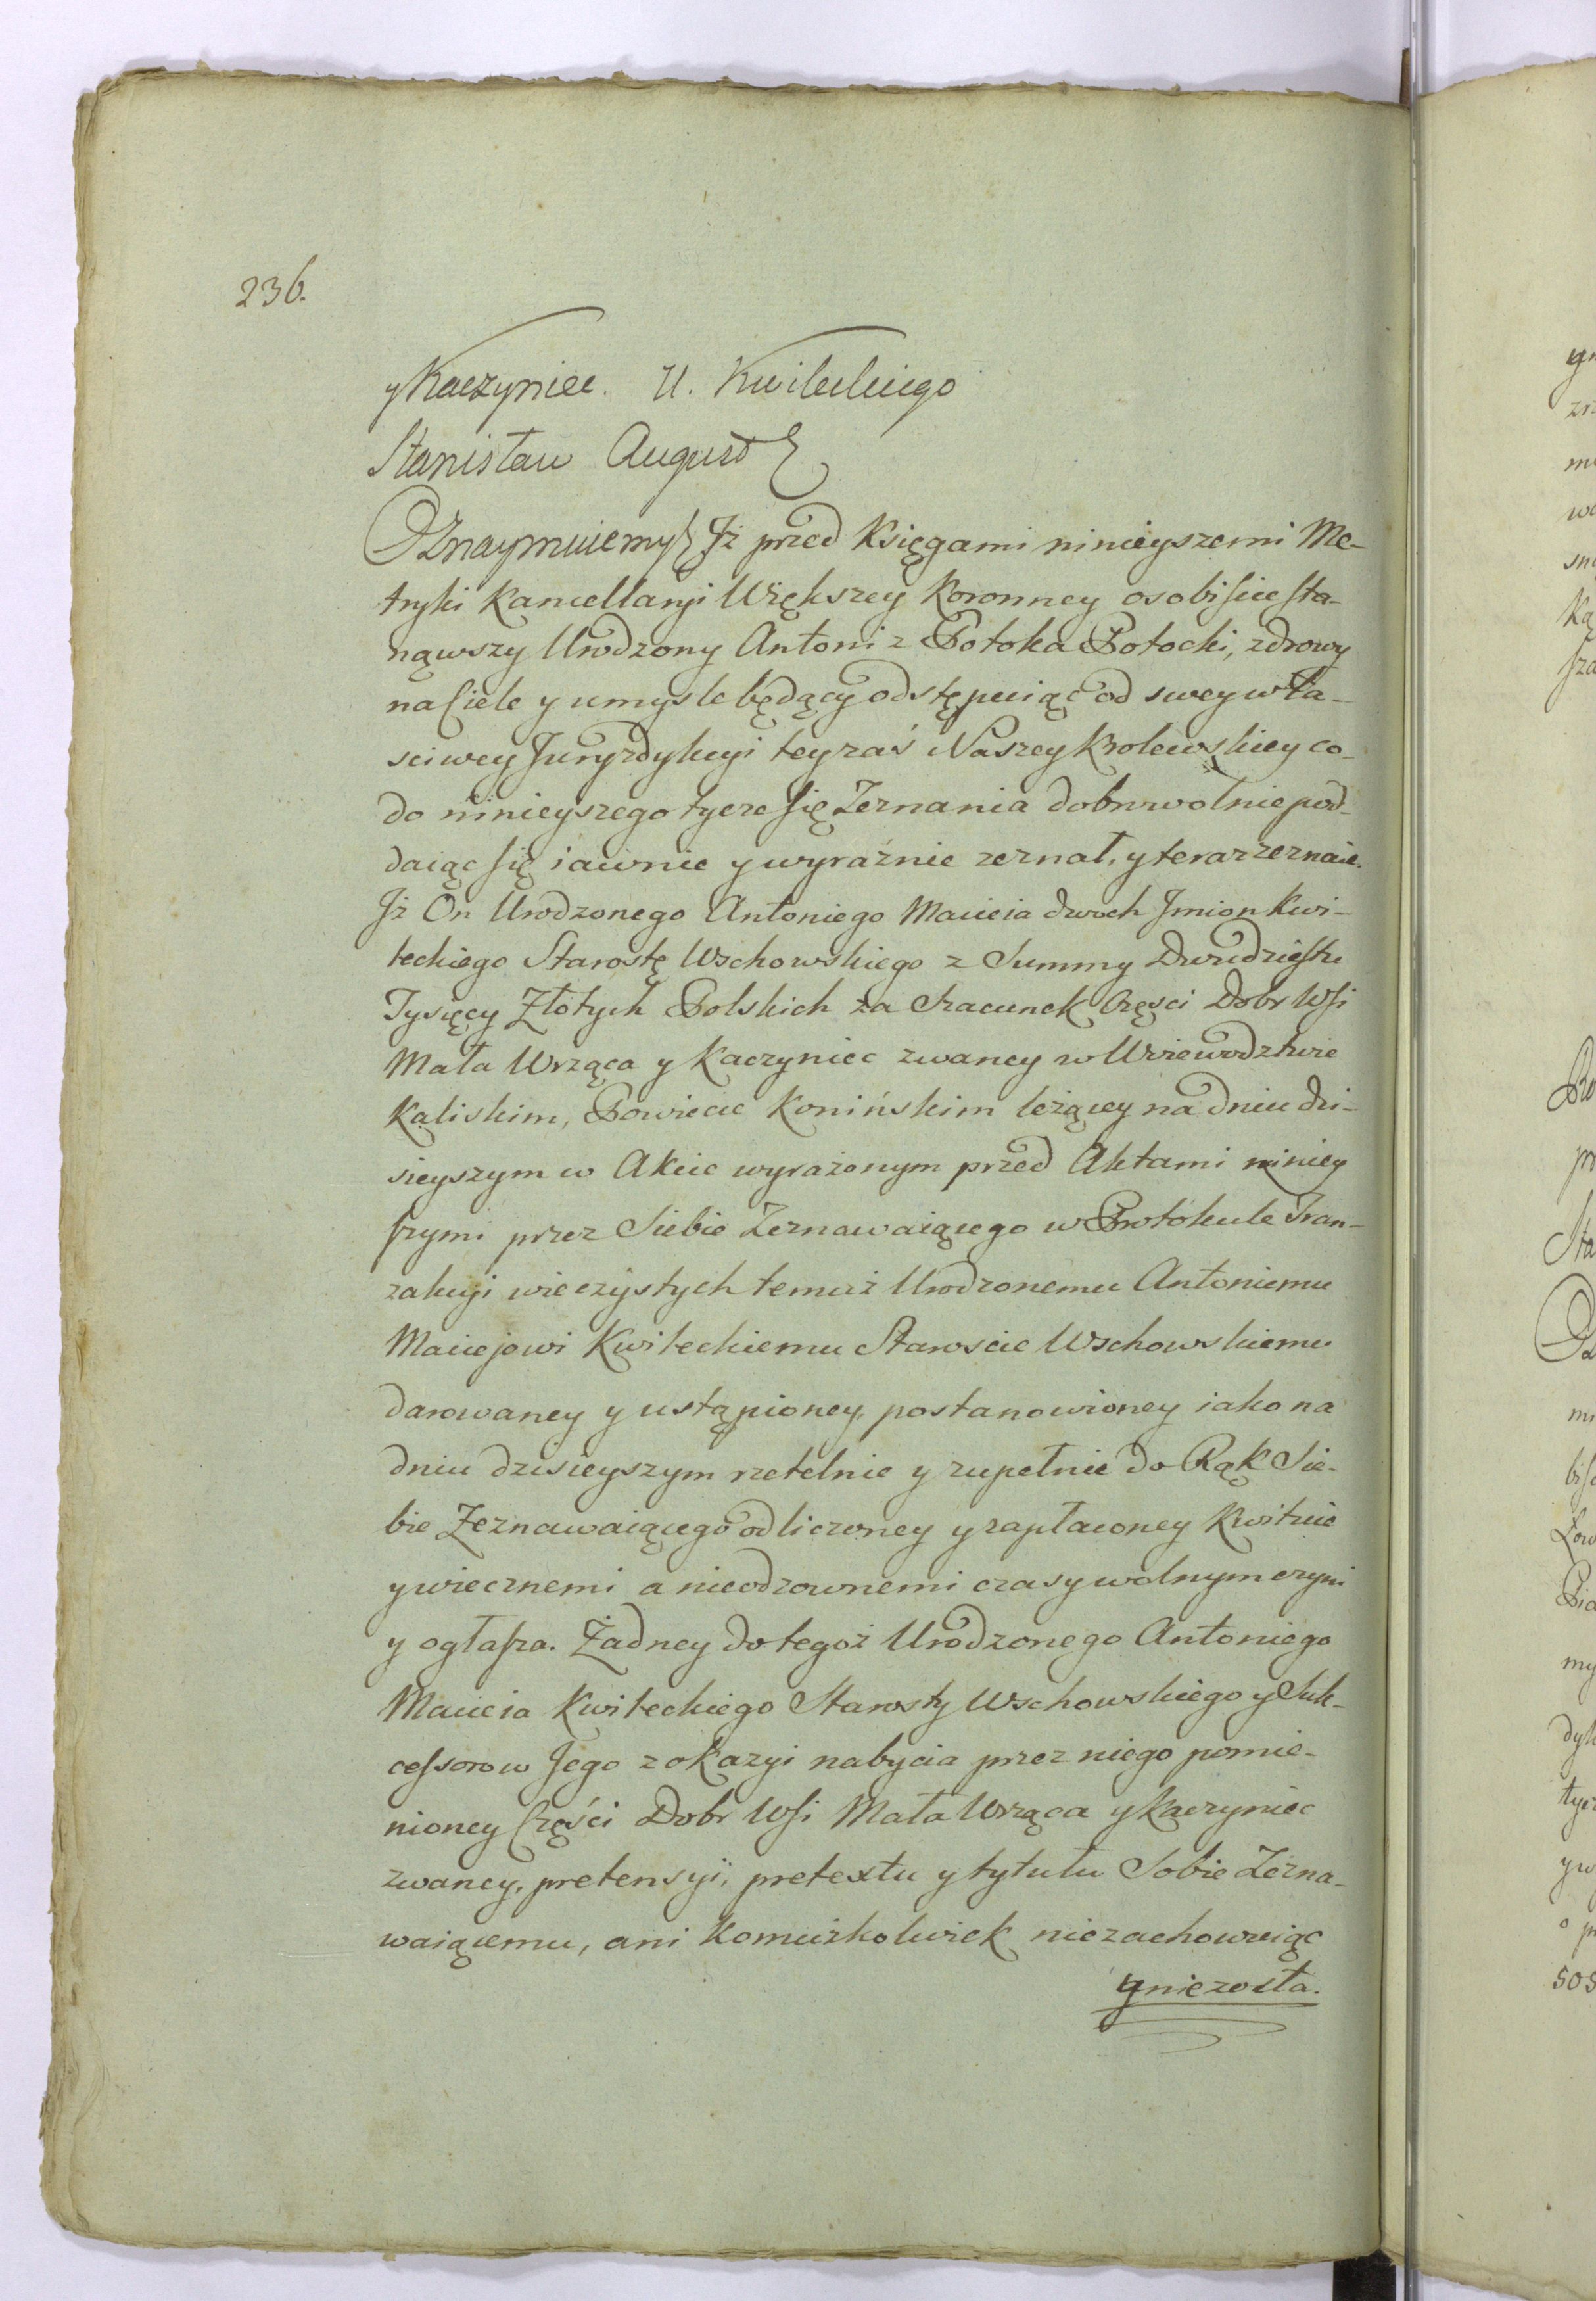 236.
y Kaczyniec. U. Kwileckiego
Stanisław August
Oznaymuiemy Iż przed Księgami ninieyszemi Me-
tryki Kancellaryi Większey Koronney osobiscie sta-
nąwszy Urodzony Antoni z Potoka Potocki, zdrowy
na Ciele y umysle będący odstępuiąc od swey wła-
sciwey Juryzdykcyi tey zaś Naszey Krolewskiey co-
do ninieyszego tycze się Zeznania dobrowolnie pod-
daiąc się iawnie y wyraźnie zeznał, y teraz zeznaie.
Iż On Urodzonego Antoniego Macieia dwoch Imion Kwi-
leckiego Starostę Wschowskiego z Summy Dwudziestu
Tysięcy Złotych Polskich za Szacunek Częsci Dobr Wsi
Mała Wrząca y Kaczyniec zwaney w Woiewodztwie
Kaliskim, Powiecie Konińskim leżącey na dniu dzi-
sieyszym w Akcie wyrażonym przed Aktami niniey
szymi przez Siebie Zeznawaiącego w Protokule Tran-
zakcyi wieczystych temuż Urodzonemu Antoniemu
Maciejowi Kwileckiemu Staroscie Wschowskiemu
darowaney y ustąpioney, postanowioney iako na
dniu dzisieyszym rzetelnie y zupełnie do Rąk Sie-
bie Zeznawaiącego odliczoney y zapłaconey Kwituie
y wiecznemi a nieodzownemi czasy wolnym czyni
y ogłasza. Żadney do tegoż Urodzonego Antoniego
Macieia Kwileckiego Starosty Wschowskiego y Suk-
cessorow Jego z okazyi nabycia przez niego pomie-
nioney Części Dobr Wsi Mała Wrząca y Kaczyniec
zwaney, pretensyi, pretextu y tytułu Sobie Zezna-
waiącemu, ani komużkolwiek niezachowuiąc
y niezosta.